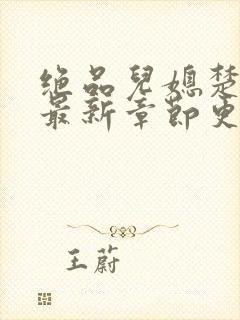 绝品兒媳楚
最新章節更
王蔚